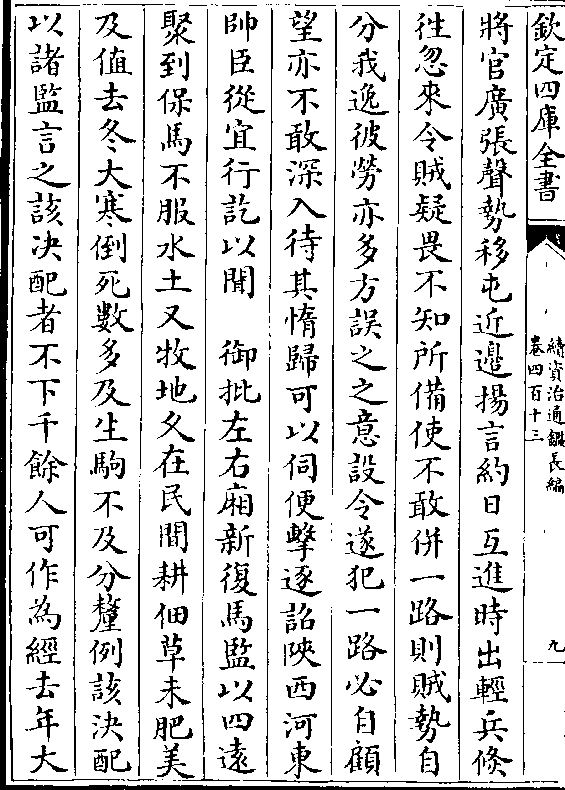 欽定四庫全書
續資治通鑑長編
卷四百十三
九
將官廣張聲勢移屯近邉揚言約日互進時出輕兵倐
徃忽來令賊疑畏不知所備使不敢併一路則賊勢自
分我逸彼勞亦多方誤之之意設令遂犯一路必自顧
望亦不敢深入待其惰歸可以伺便擊逐詔陝西河東
帥臣從宜行訖以聞　御批左右廂新復馬監以四遠
聚到保馬不服水土又牧地久在民間耕佃草未肥美
及值去冬大寒倒死數多及生駒不及分釐例該決配
以諸監言之該決配者不下千餘人可作為經去年大